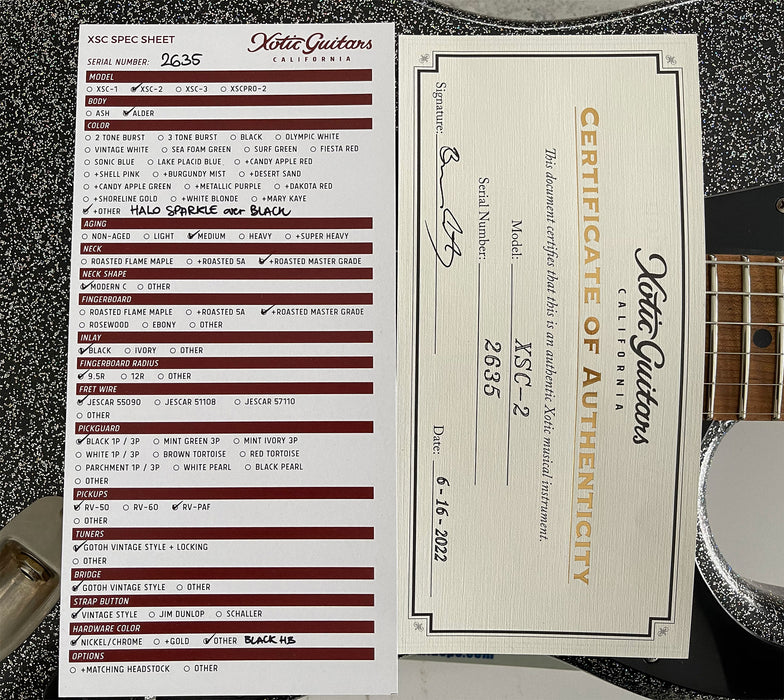 XSC SPEC SHEET
Xotic Guitars
CALIFORNIA
SERIAL NUMBER: 2635
MODEL
XSC-1 XSC-2 XSC-3 XSCPRO-2
BODY
ASH ALDER
COLOR
2 TONE BURST 3 TONE BURST BLACK OLYMPIC WHITE
VINTAGE WHITE SEA FOAM GREEN SURF GREEN FIESTA RED
SONIC BLUE LAKE PLACID BLUE +CANDY APPLE RED
+SHELL PINK +BURGUNDY MIST +DESERT SAND
+CANDY APPLE GREEN +METALLIC PURPLE +DAKOTA RED
+SHORELINE GOLD +WHITE BLONDE +MARY KAYE
+OTHER HALO SPARKLE over BLACK
AGING
NON-AGED LIGHT MEDIUM HEAVY +SUPER HEAVY
NECK
ROASTED FLAME MAPLE +ROASTED 5A +ROASTED MASTER GRADE
NECK SHAPE
MODERN C OTHER
FINGERBOARD
ROASTED FLAME MAPLE +ROASTED 5A +ROASTED MASTER GRADE
ROSEWOOD EBONY OTHER
INLAY
BLACK IVORY OTHER
FINGERBOARD RADIUS
9.5R 12R OTHER
FRET WIRE
JESCAR 55090 JESCAR 51108 JESCAR 57110
OTHER
PICKGUARD
BLACK 1P / 3P MINT GREEN 3P MINT IVORY 3P
WHITE 1P / 3P BROWN TORTOISE RED TORTOISE
PARCHMENT 1P / 3P WHITE PEARL BLACK PEARL
OTHER
PICKUPS
RV-50 RV-60 RV-PAF
OTHER
TUNERS
GOTOH VINTAGE STYLE + LOCKING
OTHER
BRIDGE
GOTOH VINTAGE STYLE OTHER
STRAP BUTTON
VINTAGE STYLE JIM DUNLOP SCHALLER
HARDWARE COLOR
NICKEL/CHROME +GOLD OTHER BLACK HB
OPTIONS
+MATCHING HEADSTOCK OTHER
Xotic Guitars
CALIFORNIA
CERTIFICATE OF AUTHENTICITY
This document certifies that this is an authentic Xotic musical instrument.
Model: XSC-2
Serial Number: 2635
Signature: Date: 6-16-2022